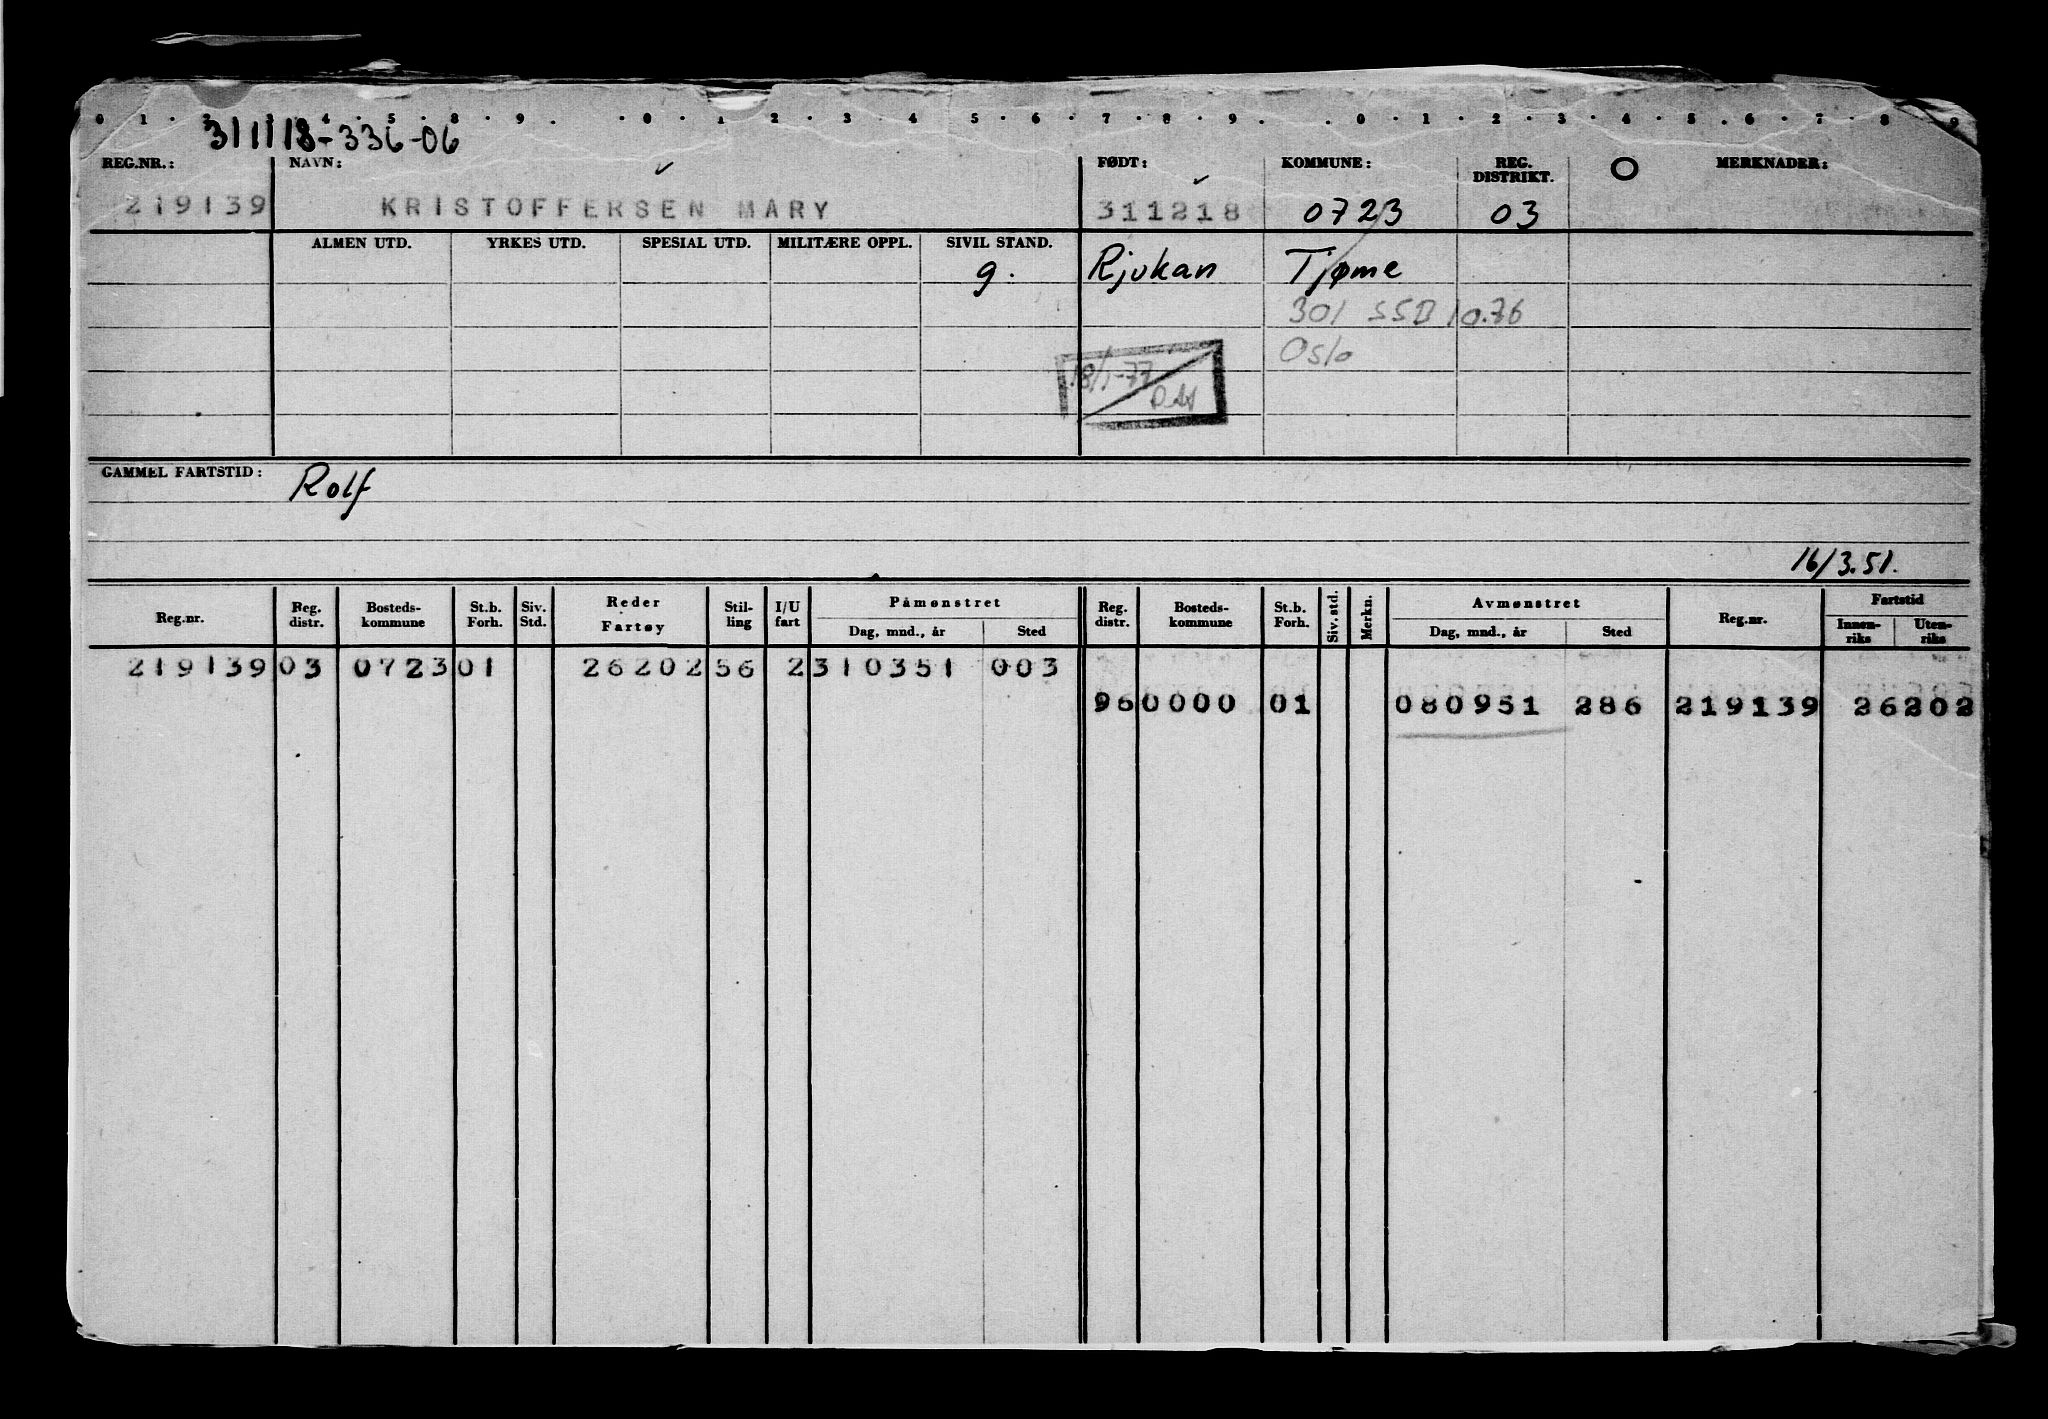 0 1 2 3 4 5 8 9 0 1 2 3 4 5 6 7 8 9 0 1 2 3 4 5 6 7 8 9
-336-06
REG.NR.: NAVN: FØDT: KOMMUNE: REG. DISTRIKT. O MERKNADER:
219139 KRISTOFFERSEN MARY 311218 0723 03
ALMEN UTD. YRKES UTD. SPESIAL UTD. MILITÆRE OPPL. SIVIL STAND.
g. Rjukan Tjøme
301 SSB 10.76
Oslo
18/1-77
GAMMEL FARTSTID: Rolf
16/3.51.
Reg.nr. Reg. distr. Bosteds-kommune St.b. Forh. Siv. Std. Reder Fartøy Stil-ling I/U fart Påmønstret Dag, mnd., år Sted Reg. distr. Bosteds-kommune St.b. Forh. Siv. std. Merkn. Avmønstret Dag, mnd., år Sted Reg.nr. Fartstid Innen-riks Uten-riks
219139 03 0723 01 26202 56 2 310351 003
96 0000 01 080951 286 219139 26202